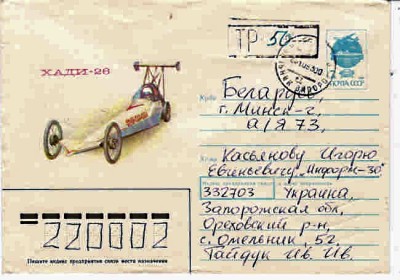 ТР-50
ХАДИ-26
ПОЧТА СССР
Куда
Беларусь,
г. Минск-2,
а/я 73,
Кому
Касьянову Игорю
Евгеньевичу, "Информ-30"
332703
Украина,
Запорожская обл,
Ореховский р-н,
с. Омельник, 52
Гайдук Ив. Ив.
220002
Пишите индекс предприятия связи места назначения